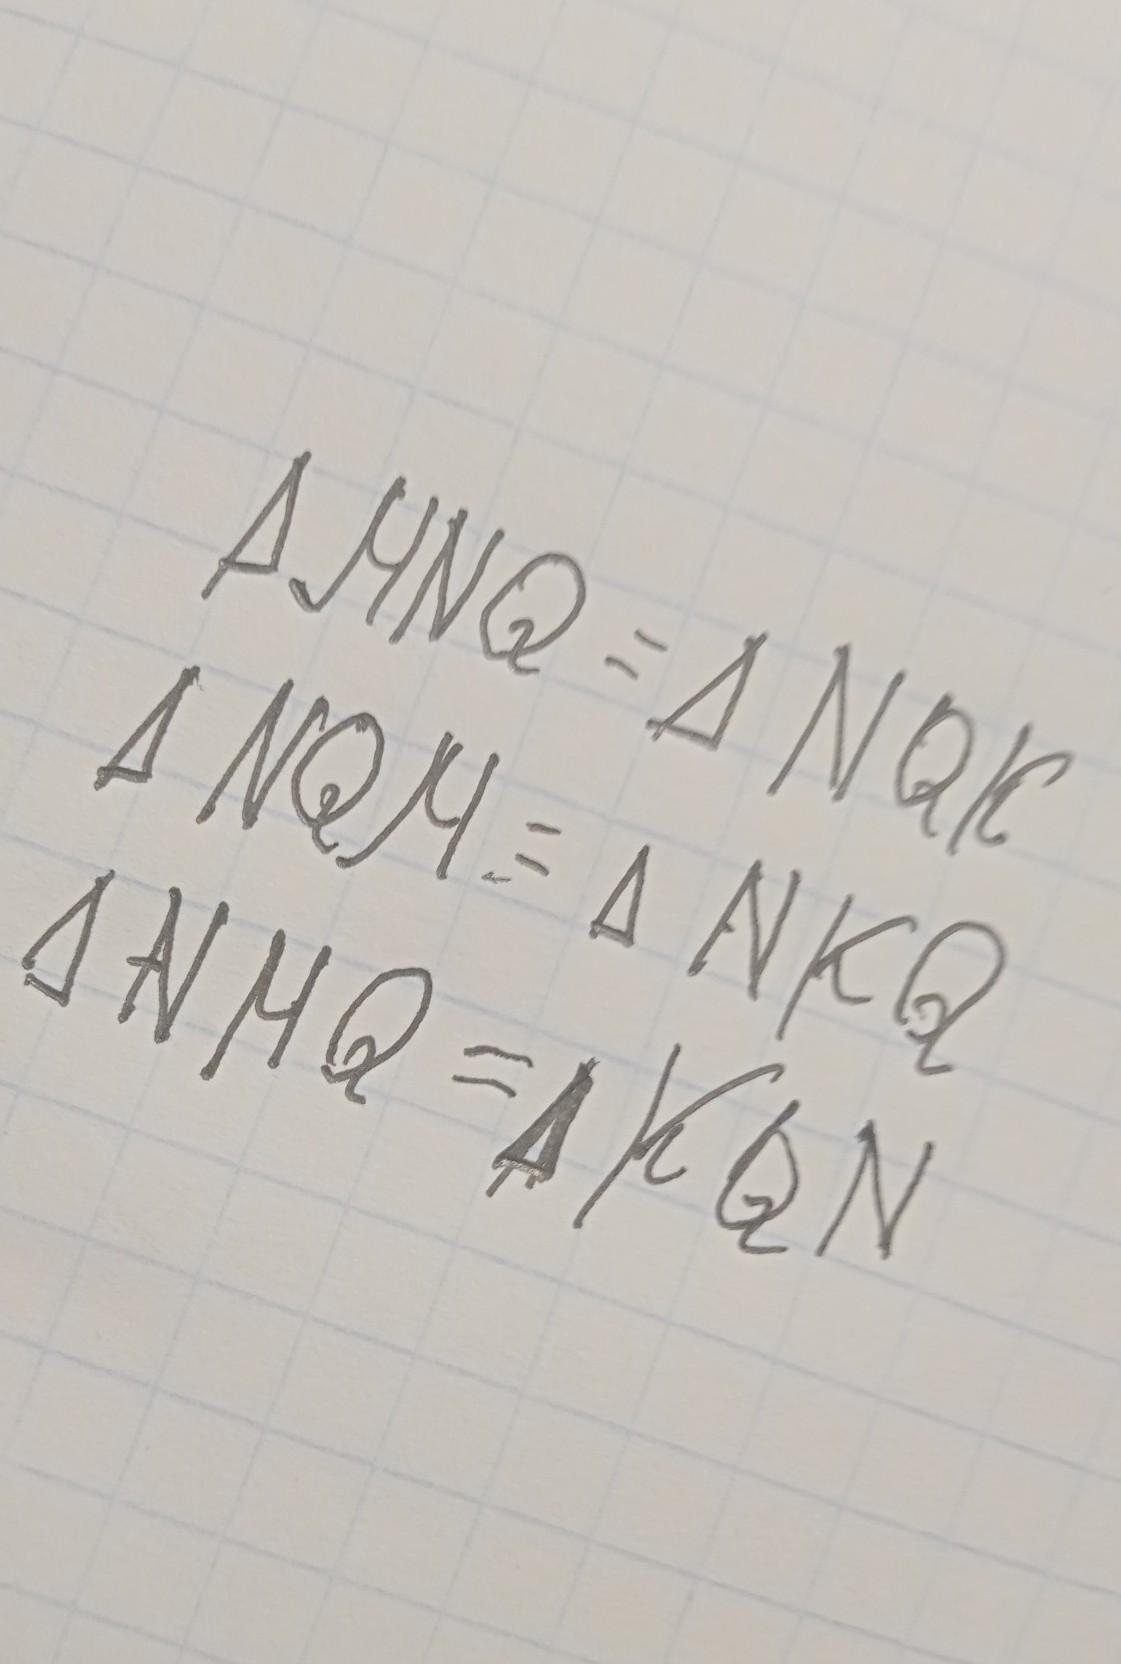 ΔMNQ = ΔNQK
ΔNQM = ΔNKQ
ΔNMQ = ΔKQN